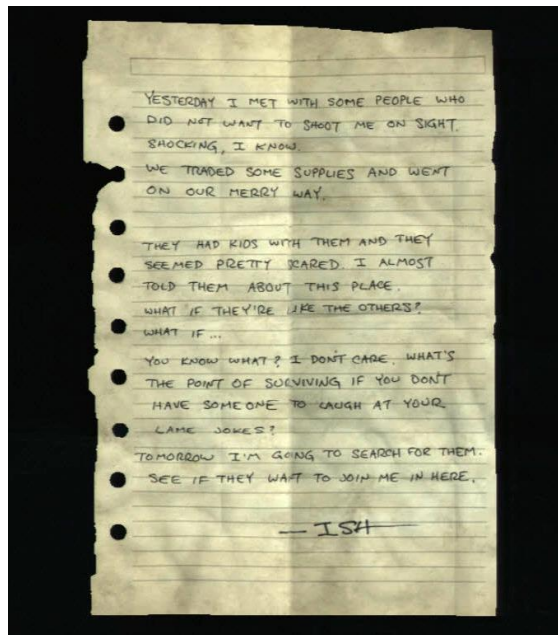 YESTERDAY I MET WITH SOME PEOPLE WHO
DID NOT WANT TO SHOOT ME ON SIGHT.
SHOCKING, I KNOW.
WE TRADED SOME SUPPLIES AND WENT
ON OUR MERRY WAY.
THEY HAD KIDS WITH THEM AND THEY
SEEMED PRETTY SCARED. I ALMOST
TOLD THEM ABOUT THIS PLACE.
WHAT IF THEY'RE LIKE THE OTHERS?
WHAT IF...
YOU KNOW WHAT? I DON'T CARE. WHAT'S
THE POINT OF SURVIVING IF YOU DON'T
HAVE SOMEONE TO LAUGH AT YOUR
LAME JOKES?
TOMORROW I'M GOING TO SEARCH FOR THEM.
SEE IF THEY WANT TO JOIN ME IN HERE.
—ISH